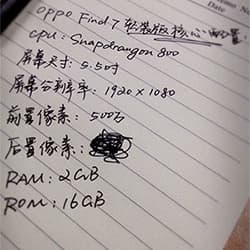 oppo Find 7 轻装版核心配置:
cpu: Snapdrangon 800
屏幕尺寸: 5.5吋
屏幕分辨率: 1920×1080
前置像素: 500万
后置像素:
RAM: 2GB
ROM: 16GB